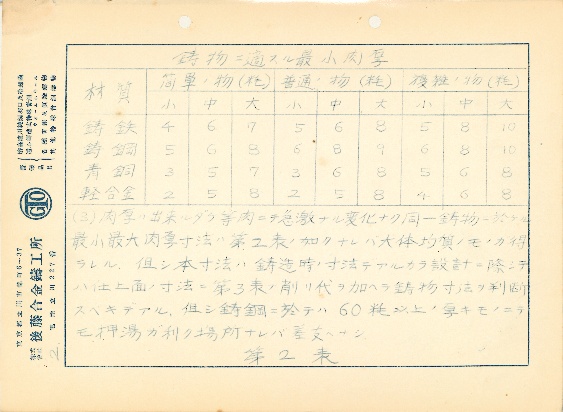 鋳物ニ適スル最小肉厚
材質 簡単ノ物(粍) 普通ノ物(粍) 複雑ノ物(粍)
小 中 大 小 中 大 小 中 大
鋳鉄 4 6 7 5 6 8 5 8 10
鋳鋼 5 6 8 6 8 9 6 8 10
青銅 3 5 7 3 6 8 5 6 8
軽合金 2 5 8 2 5 8 4 6 8
(3)肉厚ハ出来ルダケ等肉ニテ急激ナル変化ナク同一鋳物ニ於ケル
最小最大肉厚寸法ハ第2表ノ如クナレバ大体均質ノモノガ得
ラレル、但シ本寸法ハ鋳造時ノ寸法デアルカラ設計ニ際シテ
ハ仕上面ノ寸法ニ第3表ノ削リ代ヲ加ヘテ鋳物寸法ヲ判断
スベキデアル、但シ鋳鋼ニ於テハ60粍以上ノ厚キモノニテ
モ押湯ガ利ク場所ナレバ差支ヘナシ
第2表
後藤合金鋳工所
東京都立川市
電話立川227番
2.
GTO